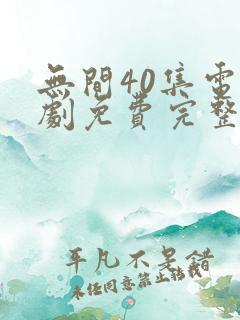 無間40集電
劇免費完整
平凡不是錯
未經同意禁止轉載